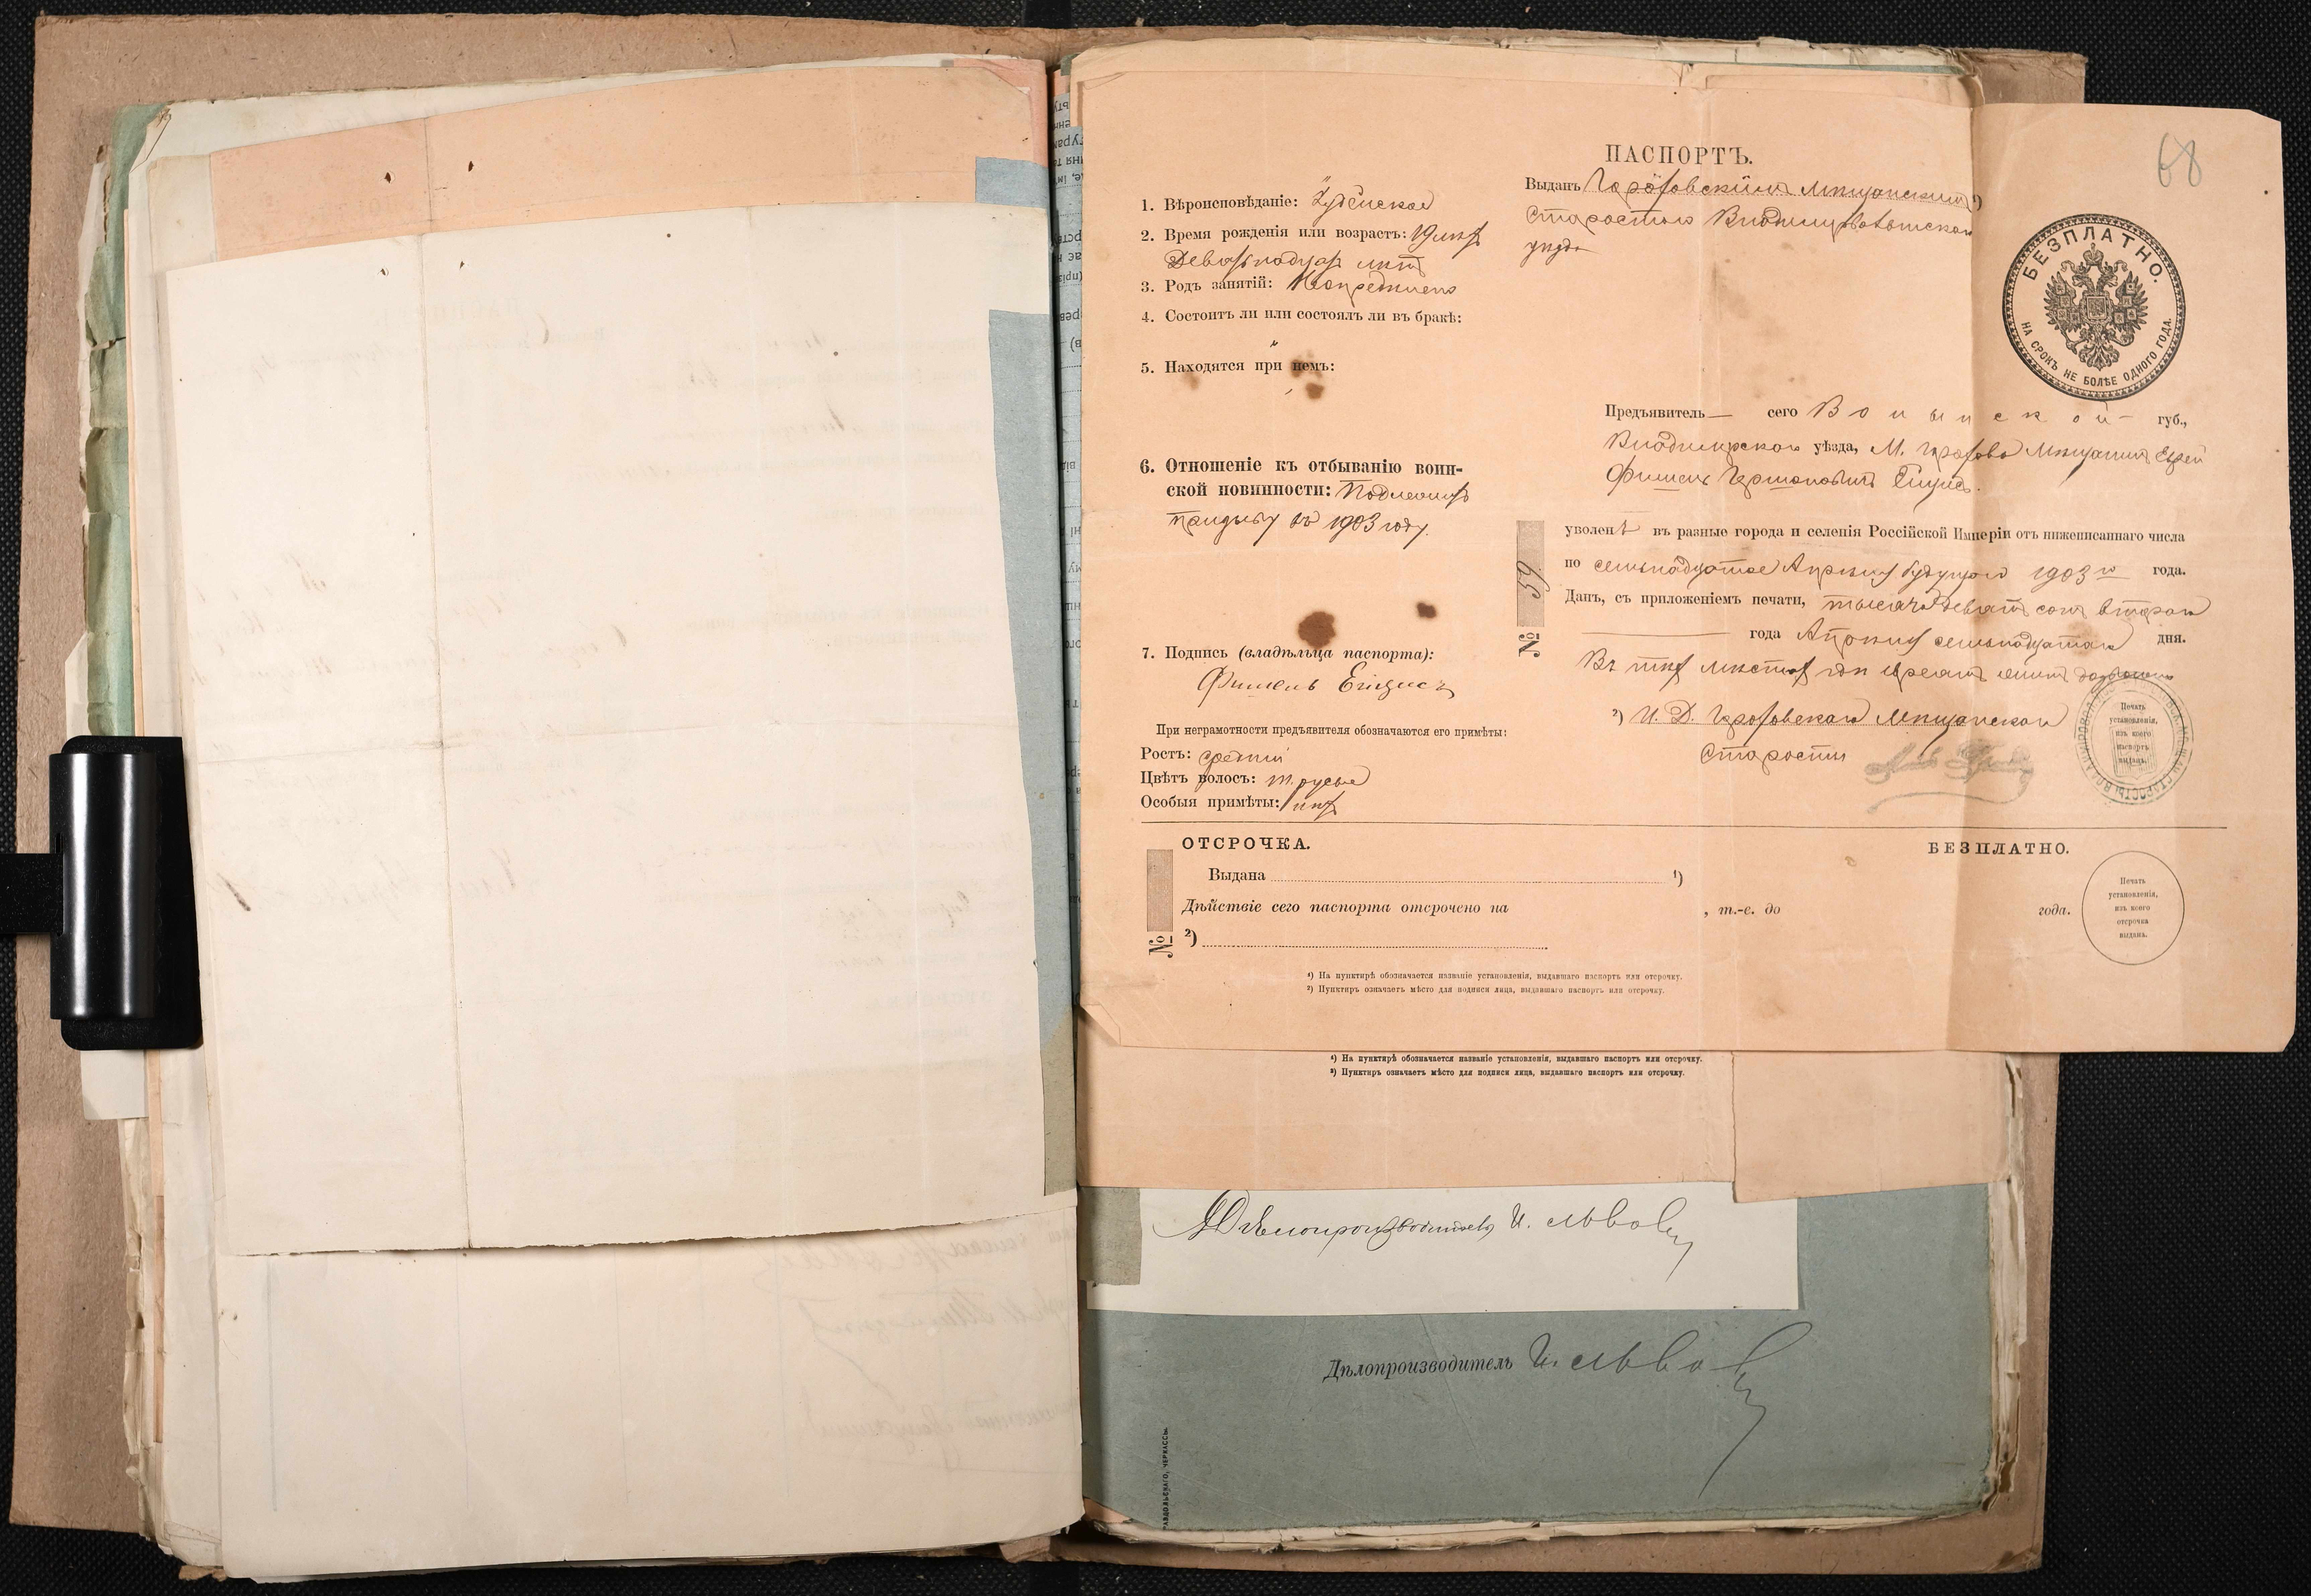 68
ПАСПОРТЪ.
Выданъ Мѣщанскимъ ¹)
Старостою Владимірволынскаго
уѣзда
БЕЗПЛАТНО.
НА СРОКЪ НЕ БОЛѢЕ ОДНОГО ГОДА.
1. Вѣроисповѣданіе: Іудейское
2. Время рожденія или возрастъ: 19 лѣтъ
Девятнадцать лѣтъ
3. Родъ занятій:
4. Состоитъ ли или состоялъ ли въ бракѣ:
5. Находятся при немъ:
6. Отношеніе къ отбыванію воин-
ской повинности: Подлежитъ
призыву въ 1903 году.
7. Подпись (владѣльца паспорта):
Фишель
При неграмотности предъявителя обозначаются его примѣты:
Ростъ: средній
Цвѣтъ волосъ: т. русые
Особыя примѣты: нѣтъ
Предъявитель — сего Волынской губ.,
Владимірскаго уѣзда, М. Мѣщанинъ Еврей
Фишель
уволенъ въ разные города и селенія Россійской Имперіи отъ нижеписаннаго числа
по семнадцатое Апрѣля будущаго 1903 го года.
Данъ, съ приложеніемъ печати, тысяча девятьсотъ второго
года Апрѣля семнадцатаго дня.
Въ тѣхъ мѣстахъ гдѣ евреямъ жить дозволено
№ 59
²) И. Д. Мѣщанскаго
Старосты
Печать
установленія,
изъ коего
паспортъ
выданъ.
ОТСРОЧКА.
БЕЗПЛАТНО.
Выдана ¹)
Дѣйствіе сего паспорта отсрочено на , т.-е. до года.
№ ²)
Печать
установленія,
изъ коего
отсрочка
выдана.
¹) На пунктирѣ обозначается названіе установленія, выдавшаго паспортъ или отсрочку.
²) Пунктиръ означаетъ мѣсто для подписи лица, выдавшаго паспортъ или отсрочку.
¹) На пунктирѣ обозначается названіе установленія, выдавшаго паспортъ или отсрочку.
²) Пунктиръ означаетъ мѣсто для подписи лица, выдавшаго паспортъ или отсрочку.
Дѣлопроизводитель И. Львовъ
Дѣлопроизводитель И. Львовъ